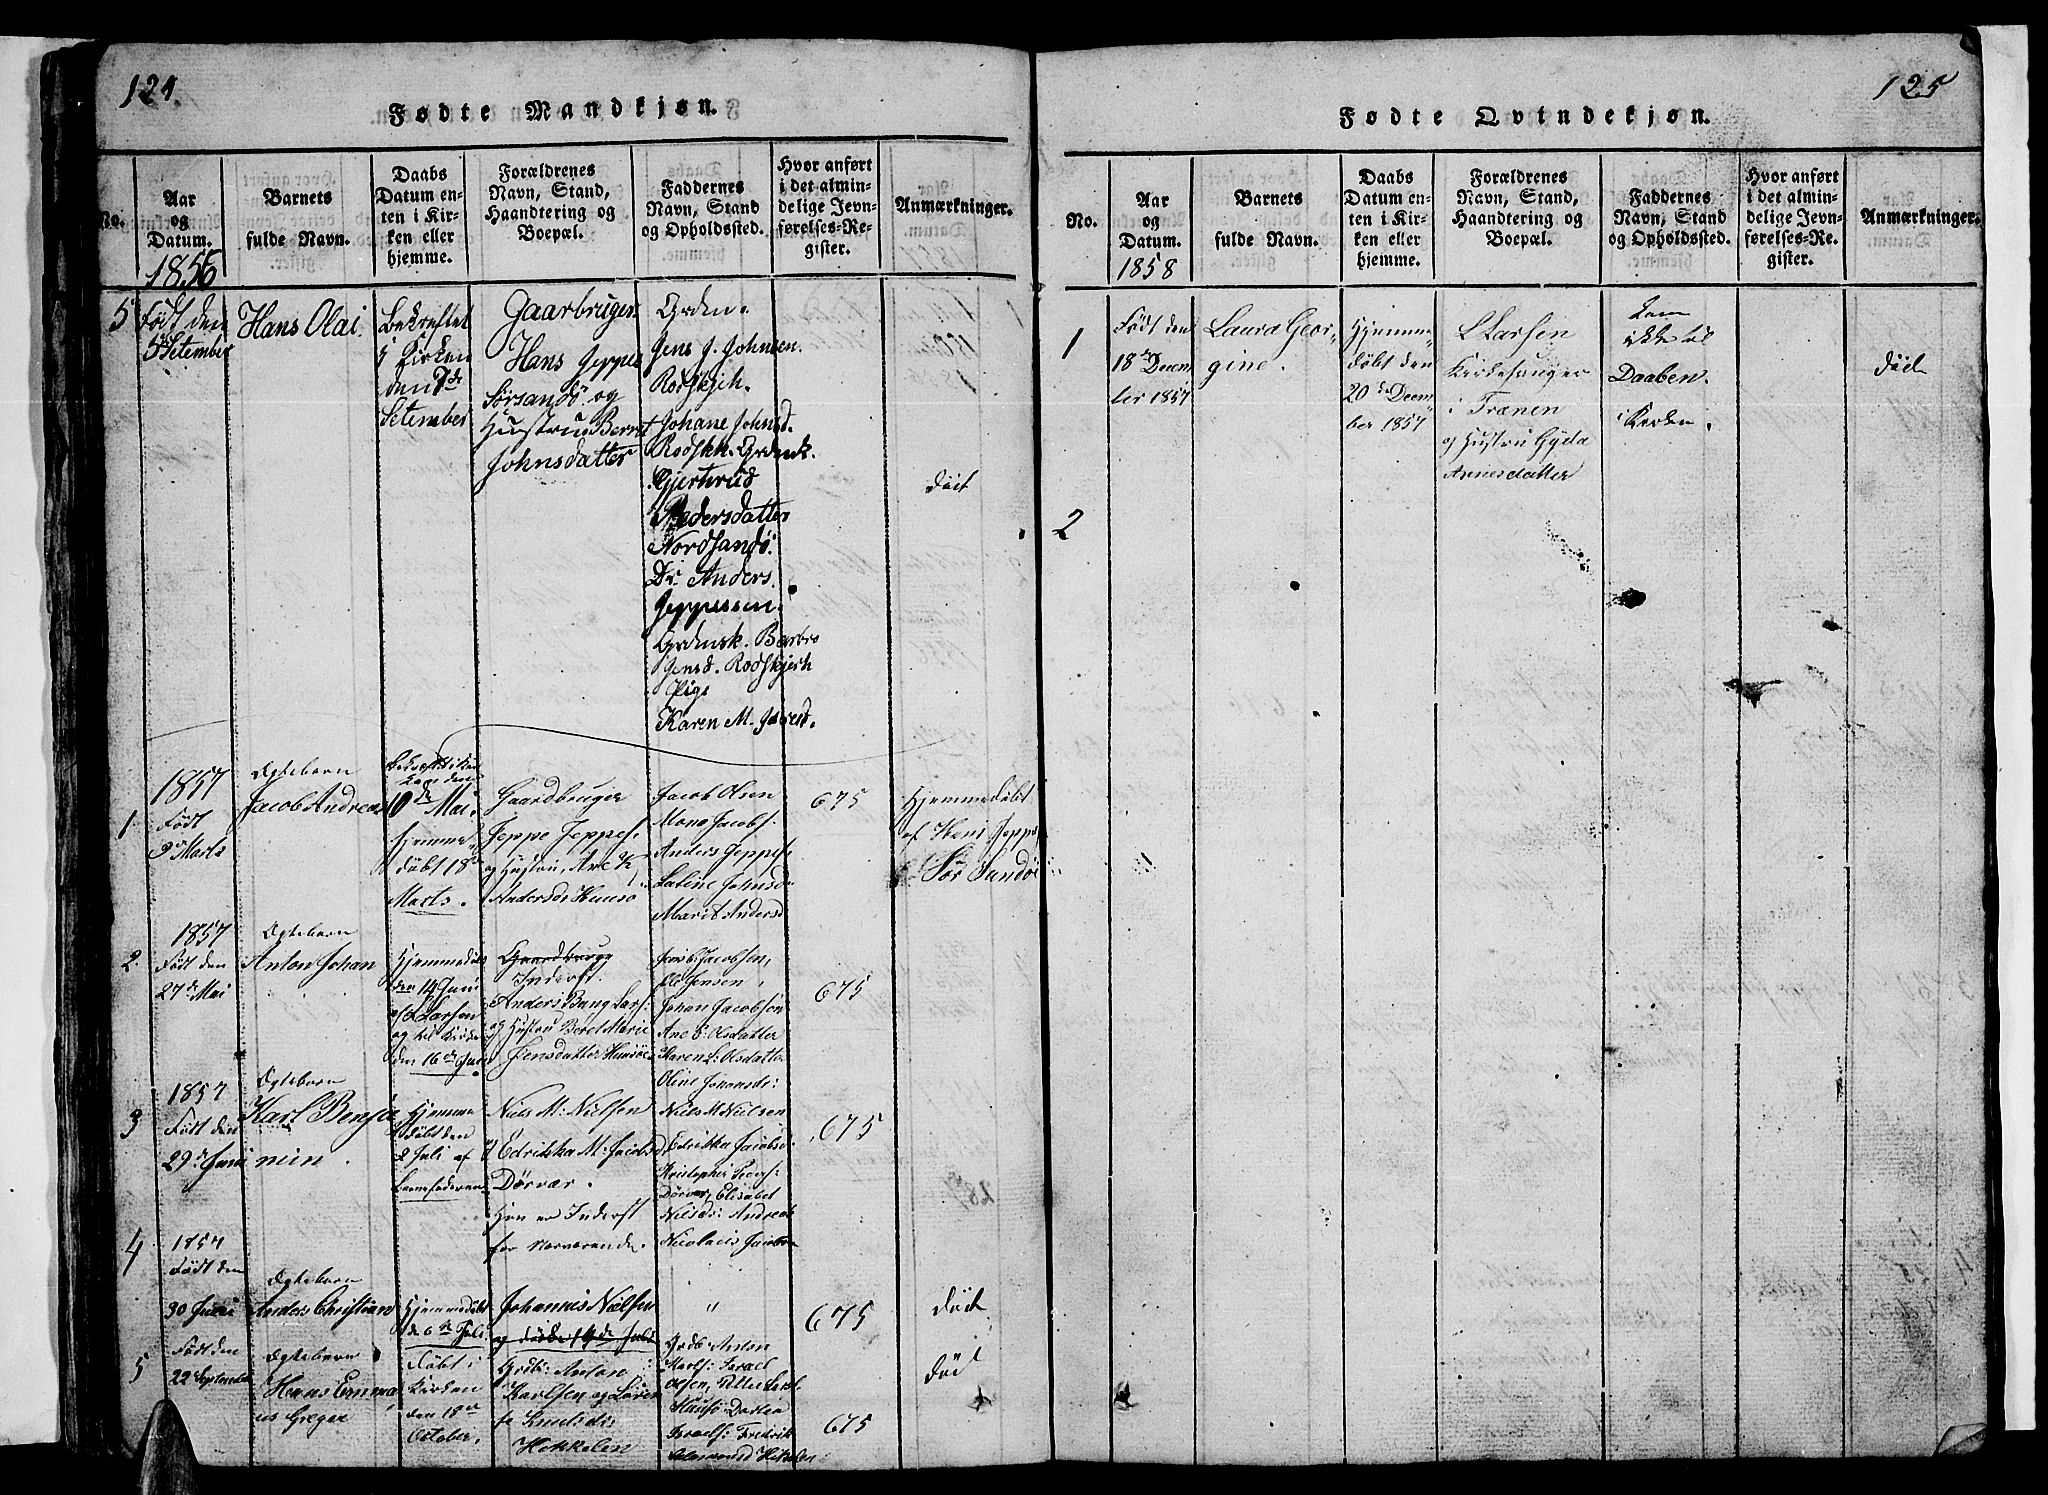 124.
Fødte Mandkjøn.
No.
Aar
og
Datum.
Barnets
fulde Navn.
Daabs
Datum en-
ten i Kir-
ken eller
hjemme.
Forældrenes
Navn, Stand,
Haandtering og
Boepæl.
Faddernes
Navn, Stand
og Opholdssted.
Hvor anført
i det almin-
delige Jevn-
førelses-Re-
gister.
Anmærkninger.
1856
5
Født den
5te Setember
Hans Olai
Bekræftet
i Kirken
den 7de
Setember
Gaarbruger
Hans Jeppes
Sørsandö og
Hustru Bernt
Johnsdatter
Grdm.
Jens J. Johnsen.
Rodskjih.
Johane Johnsd.
Rodskh. Grdmk.
Gjertrud
Pedersdatter
Nordsandö.
Dr. Anders.
Jeppesen.
Grdmsk. Barbro
Jensd. Rodskjerh
Pige
Karen M. Jensd.
död
1857
1
Født
9de Marts
Ægtebarn
Jacob Andreas
10de Mai.
Hjemme-
döbt 18de
Marts.
Gaardbruger
Jeppe Jeppes:
og Hustru, Ane K
Andersd: Huusö
Jacob Olsen
Mona Jacobs:
Anders Jeppes:
Marit Andersd
675
Hjemmedöbt
af Hans Jepps,
Sör Sandöe
1857
2.
Född den
27de Mai
Ægtebarn
Anton Johan
Hjemmedöbt
den 14 Juni
af L Larsen
og til Kirke
den 16de Juni
Gaardbruge
Inderst.
Anders Bang Lars:
og Hustru Beret Marie
Jensdatter Huusöe
Jacob Jacobsen,
Ole Jensen,
Johan Jacobsen
Ane E: Olsdatter
Karen L: Olsdatter
Oline Johansdr:
675
1857
3
Født den
29de Juni
Ægtebarn
Karl Benja
min.
Hjemme
döbt den
2 Juli af
Barnefaderen
Niels M: Nielsen
Edrikka M: Jacobsd
Dörvær.
Hun er Inderst
for nærværende.
Niels M Nielsen
Edrikka Jacobsd:
Kristopher Pedrs:
Dörvær, Elisabet
Nielsd: Andreas
Nicolais Jacobsen
675
4
1857
Født den
30 Juni
Ægtebarn
Anders Christian
Hjemmedöbt
de 6te Juli.
Johannes Nielsen
og döde 14de Juli
"
675
Död
5
Født den
22 September
Ægtebarn
Hans Emma
us Greger
Döbt i
Kirken
den 18de
October.
Grdb: Anton
Karlsen og Laren
se Knudsd:
Hekkelen
Grdb: Anton
Karls: Israel
Huusö Dorlea
Israels: Fredrik
675
Död
125
Fødte Qvindekjøn.
No.
Aar
og
Datum.
Barnets
fulde Navn.
Daabs
Datum en-
ten i Kir-
ken eller
hjemme.
Forældrenes
Navn, Stand,
Haandtering og
Boepæl.
Faddernes
Navn, Stand
og Opholdssted.
Hvor anført
i det almin-
delige Jevn-
førelses-Re-
gister.
Anmærkninger.
1858
1
Født den
18de Decem
ber 1857
Laura Geor-
gine.
Hjemme-
döbt den
20de Decem-
ber 1857
L Larsen
Kirkesanger
i Trænen
og Hustru Gyda
Arnesdatter
Kom
ikke til
Daaben
i Kirken.
död
2